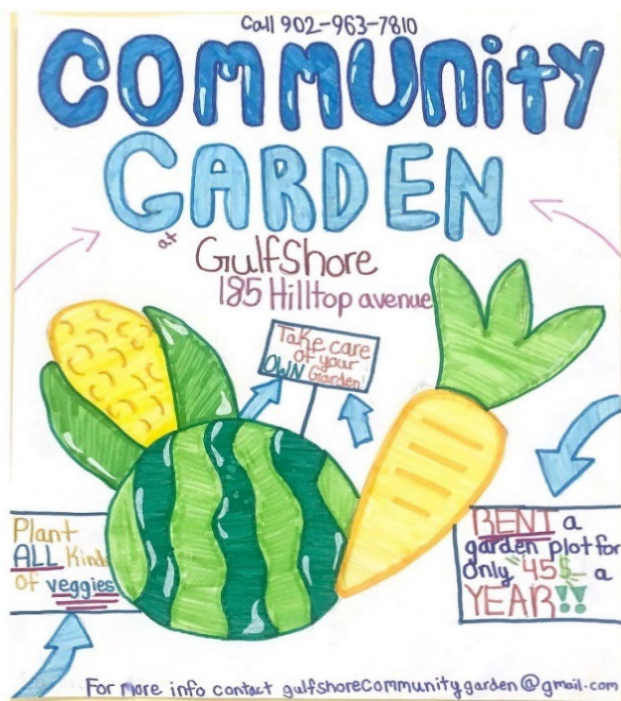 Call 902-963-7810
COMMUNITY
GARDEN
at
GulfShore
185 Hilltop avenue
Take care
of your
OWN Garden!
Plant
ALL Kinds
of veggies
RENT a
garden plot for
only 45$ a
YEAR!!
For more info contact gulfshorecommunitygarden@gmail.com